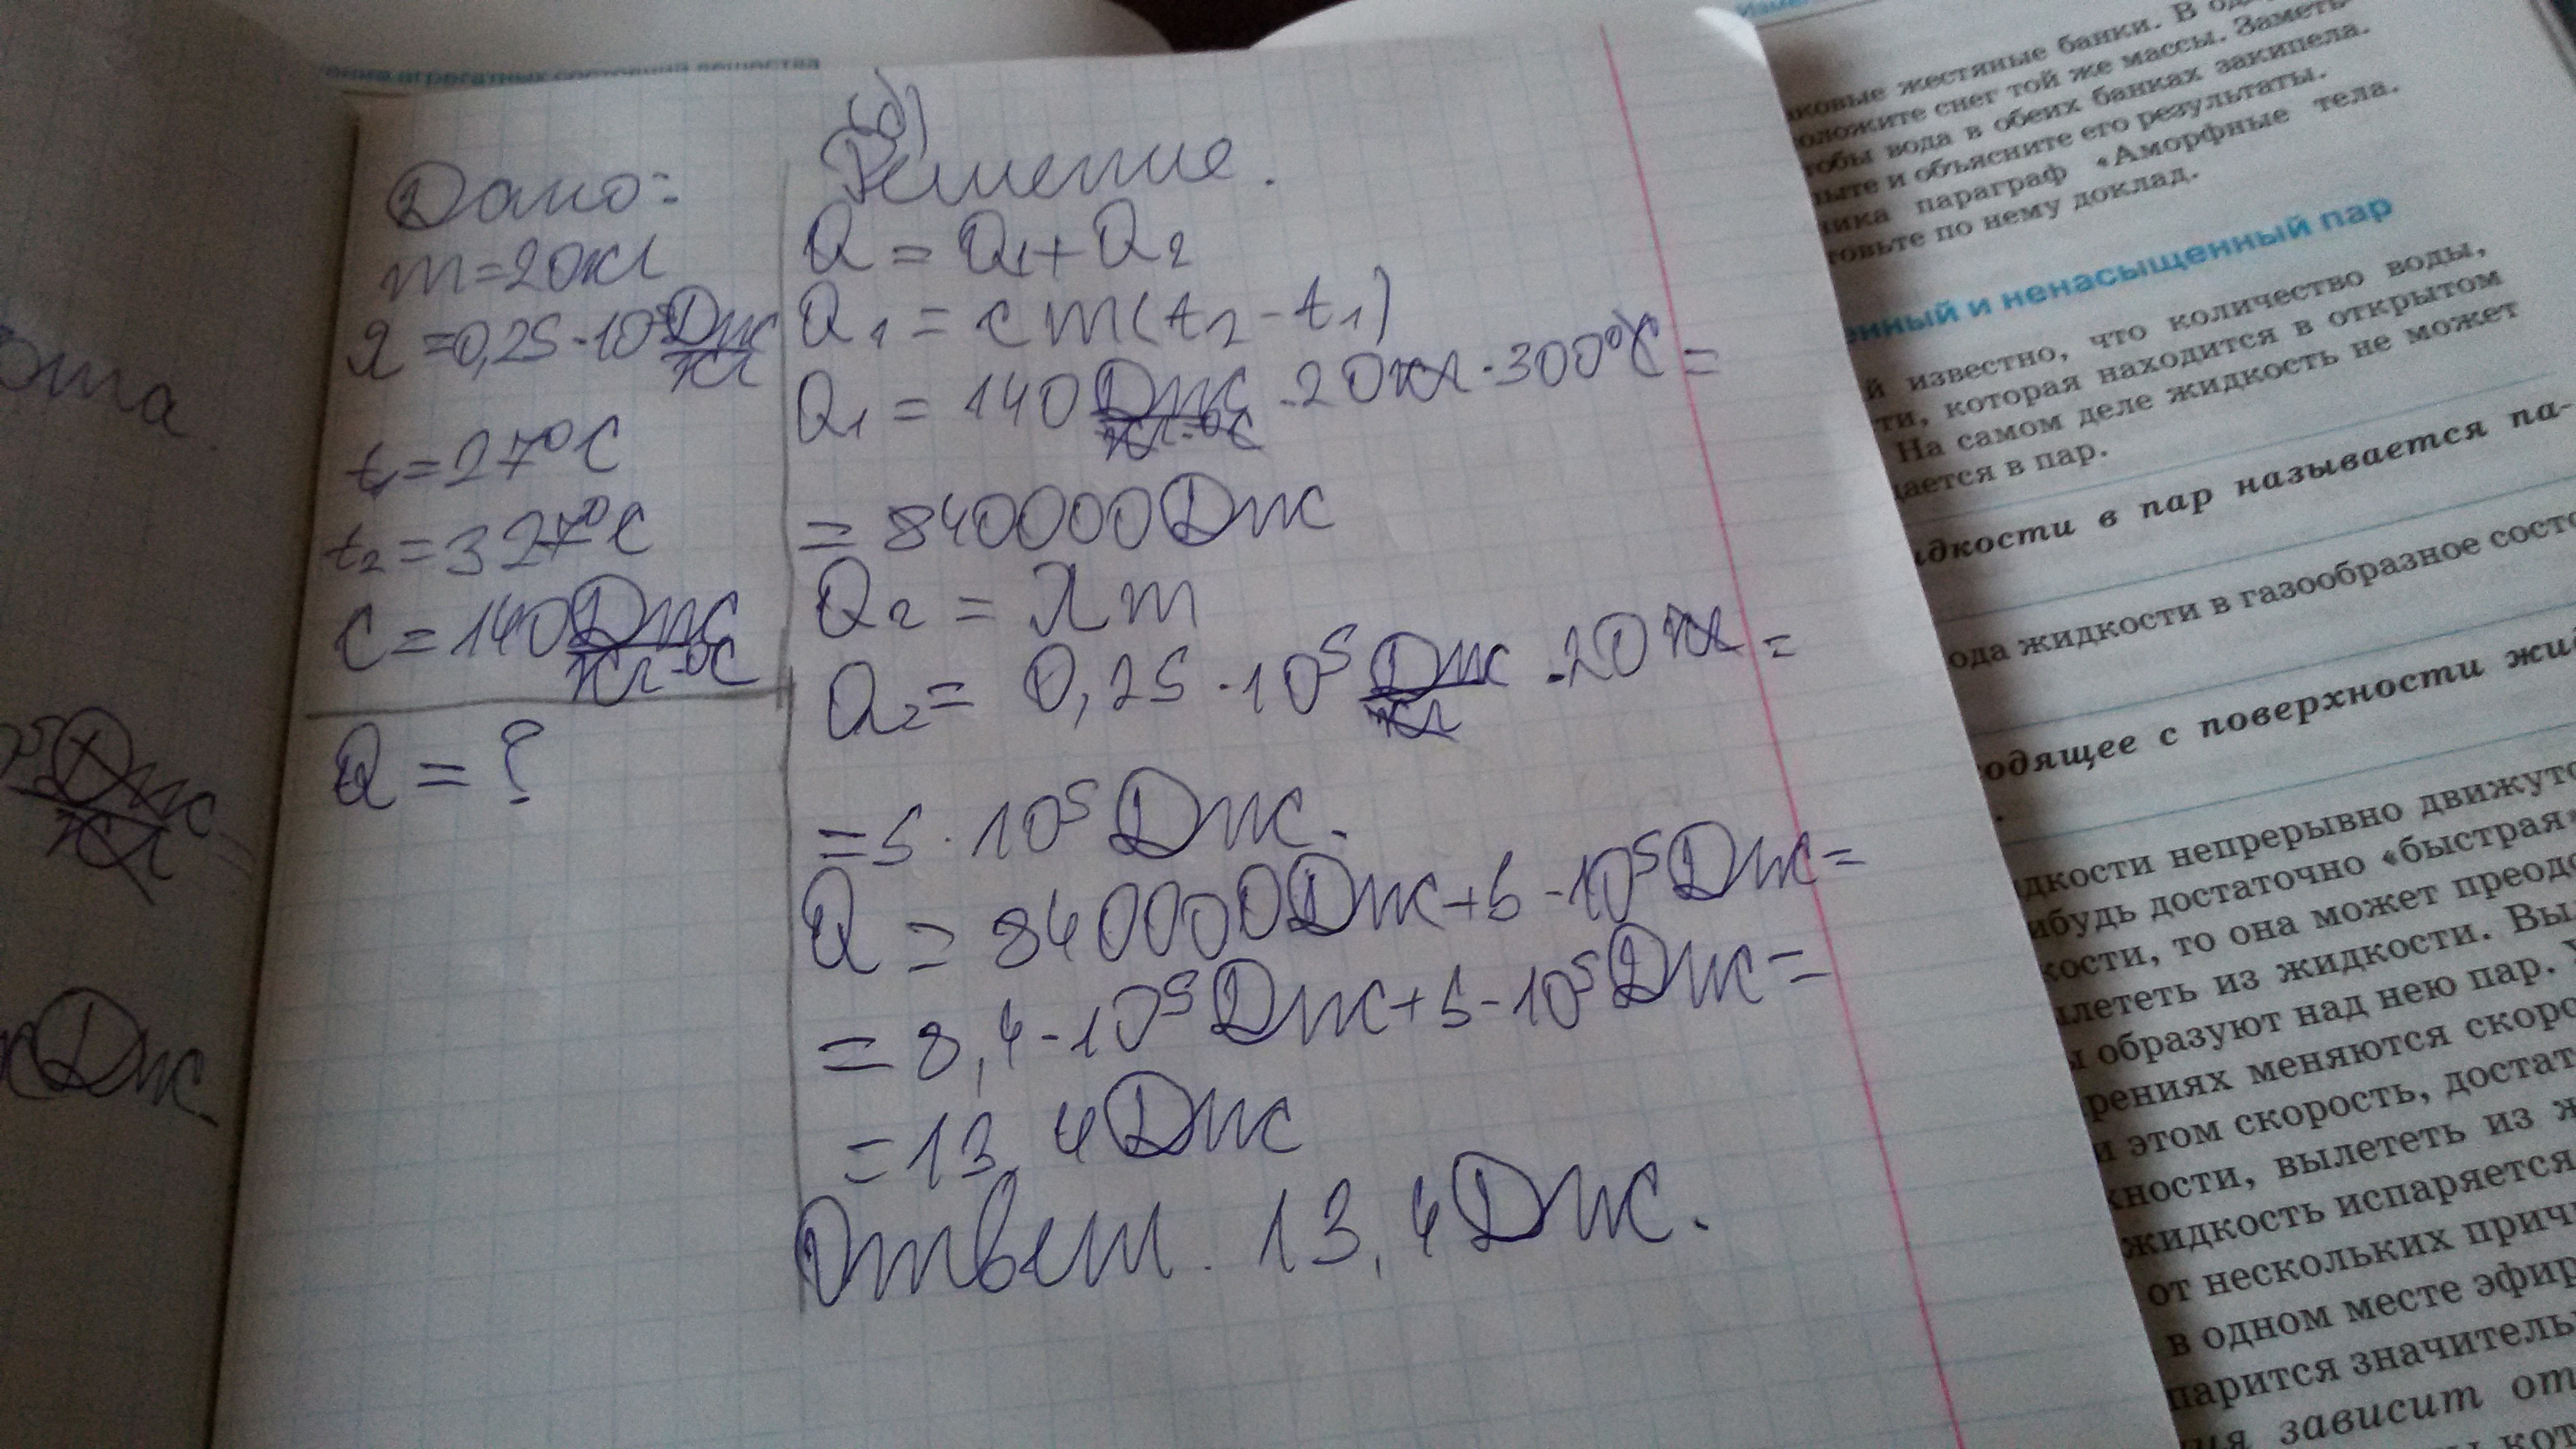 ота.
Дж
кг
Дж
агрегатных состояний вещества
Дано:
m=20кг
λ=0,25·10⁵Дж
кг
t₁=27⁰C
t₂=327⁰C
C=140Дж
кг·⁰C
Q=?
Решение.
Q=Q₁+Q₂
Q₁=cm(t₂-t₁)
Q₁=140 Дж/кг·⁰C·20кг·300⁰C=
=840000Дж
Q₂=λm
Q₂=0,25·10⁵ Дж/кг·20кг=
=5·10⁵Дж.
Q=840000Дж+5·10⁵Дж=
=8,4·10⁵Дж+5·10⁵Дж=
=13,4Дж
Ответ. 13,4Дж.
ковые жестяные банки. В
оложите снег той же массы. Заметь-
тобы вода в обеих банках закипела.
ыте и объясните его результаты.
ника параграф «Аморфные тела.
товьте по нему доклад.
енный и ненасыщенный пар
й известно, что количество воды,
ти, которая находится в открытом
На самом деле жидкость не может
дается в пар.
идкости в пар называется па-
ода жидкости в газообразное состо
одящее с поверхности жи
дкости непрерывно движутс
ибудь достаточно «быстрая»
кости, то она может преодо
ылететь из жидкости. Вы
ы образуют над нею пар.
рениях меняются скоро
и этом скорость, достат
хности, вылететь из ж
жидкость испаряется
от нескольких прич
в одном месте эфир
парится значитель
ия зависит от